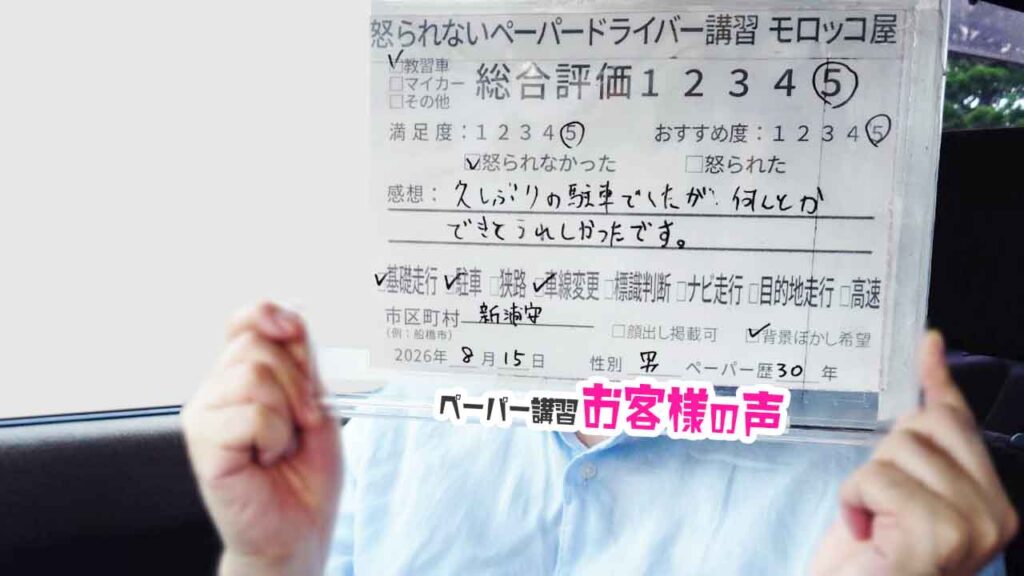 怒られないペーパードライバー講習 モロッコ屋
☑教習車
□マイカー
□その他
総合評価 1 2 3 4 ⑤
満足度：1 2 3 4 ⑤ おすすめ度：1 2 3 4 ⑤
☑怒られなかった □怒られた
感想：久しぶりの駐車でしたが、何とか
できてうれしかったです。
☑基礎走行 ☑駐車 □狭路 ☑車線変更 □標識判断 □ナビ走行 □目的地走行 □高速
市区町村 新浦安
(例：船橋市)
□顔出し掲載可 ☑背景ぼかし希望
2026年 8月 15日 性別 男 ペーパー歴 30 年
ペーパー講習 お客様の声